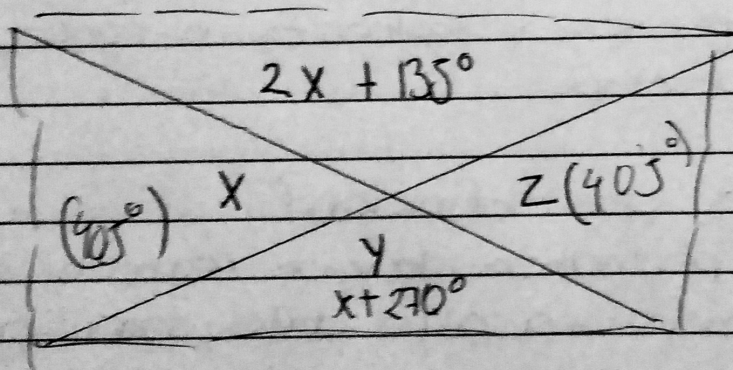 2x + 135°
(405°) x
z (405°)
y
x+270°